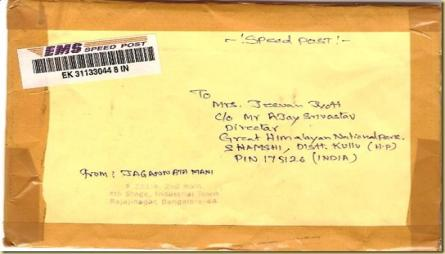 ~'Speed Post!~
EMS SPEED POST
EK 31133044 8 IN
To
Mrs. Jeevan Jyoti
C/o Mr AJay Srivastav
Director
Great Himalayan National Park.
SHAMSHI, Distt. Kullu (H.P)
PIN 175126 (INDIA)
from: JAGANNATH MANI
2nd Main
4th Stage, Industrial Town
Rajajinagar, Bangalore-44